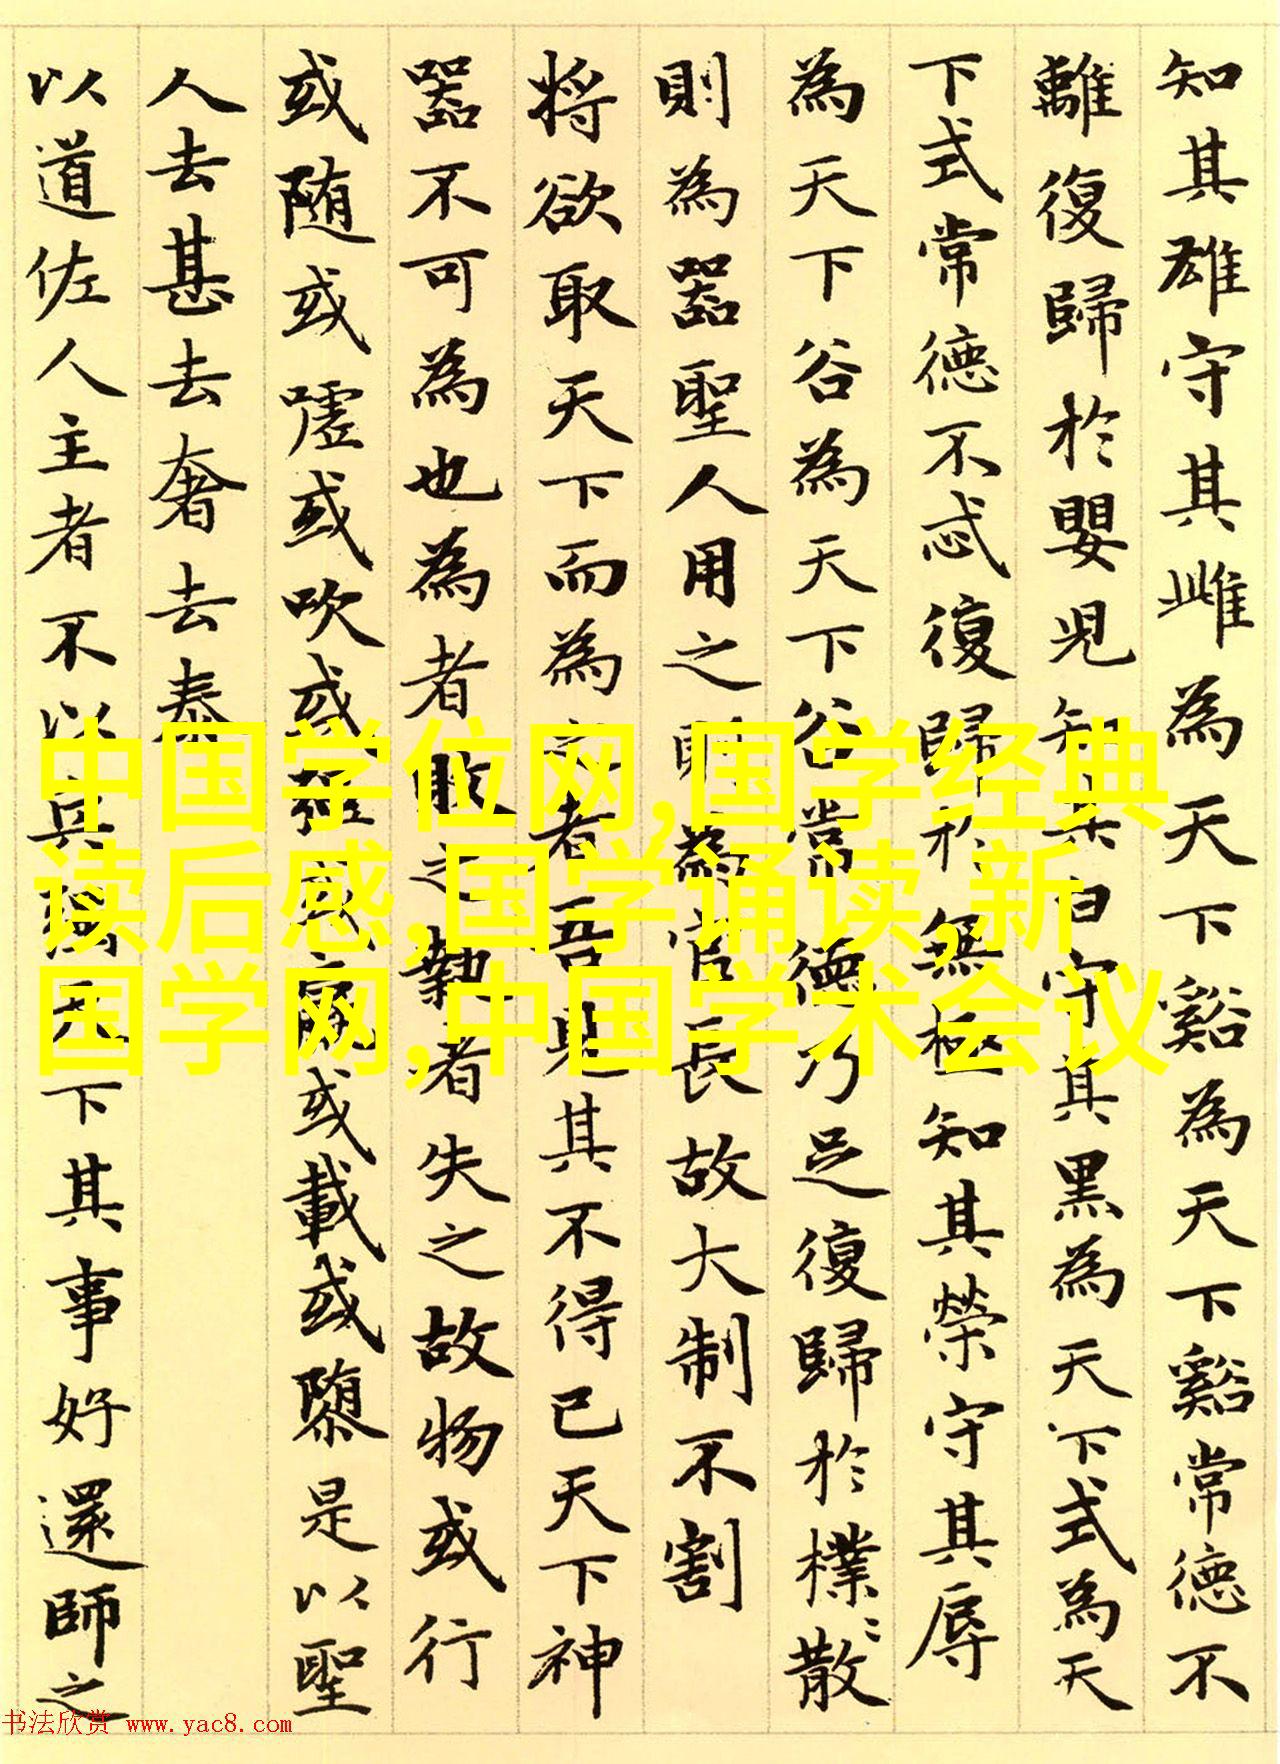 知其雄守其雌為天下谿為天下谿常德不
離復歸於嬰兒知其白守其黑為天下式為天
下式常德不忒復歸於無極知其榮守其辱
為天下谷為天下谷常德乃足復歸於樸〻散
則為器聖人用之則為官長故大制不割
将欲取天下而為之者吾見其不得已天下神
器不可為也為者敗之執者失之故物或行
或随或嘘或吹或强或羸或載或隳是以聖
人去甚去奢去泰
以道佐人主者不以兵强天下其事好還師之
中国学位网,国学经典
读后感,国学诵读,新
国学网,中国学术会议
书法欣赏 www.yac8.com